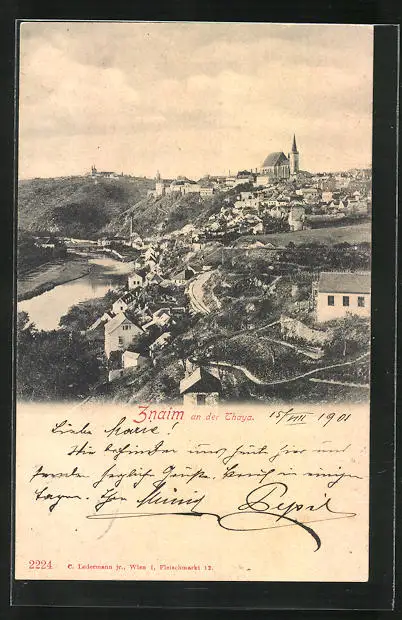 Znaim an der Thaya. 15/VIII 1901
Liebe Marie!
Wir befinden uns heute hier und
senden herzliche Grüße. Komme in einigen
Tagen. Pepil
2224 C. Ledermann jr., Wien I, Fleischmarkt 12.